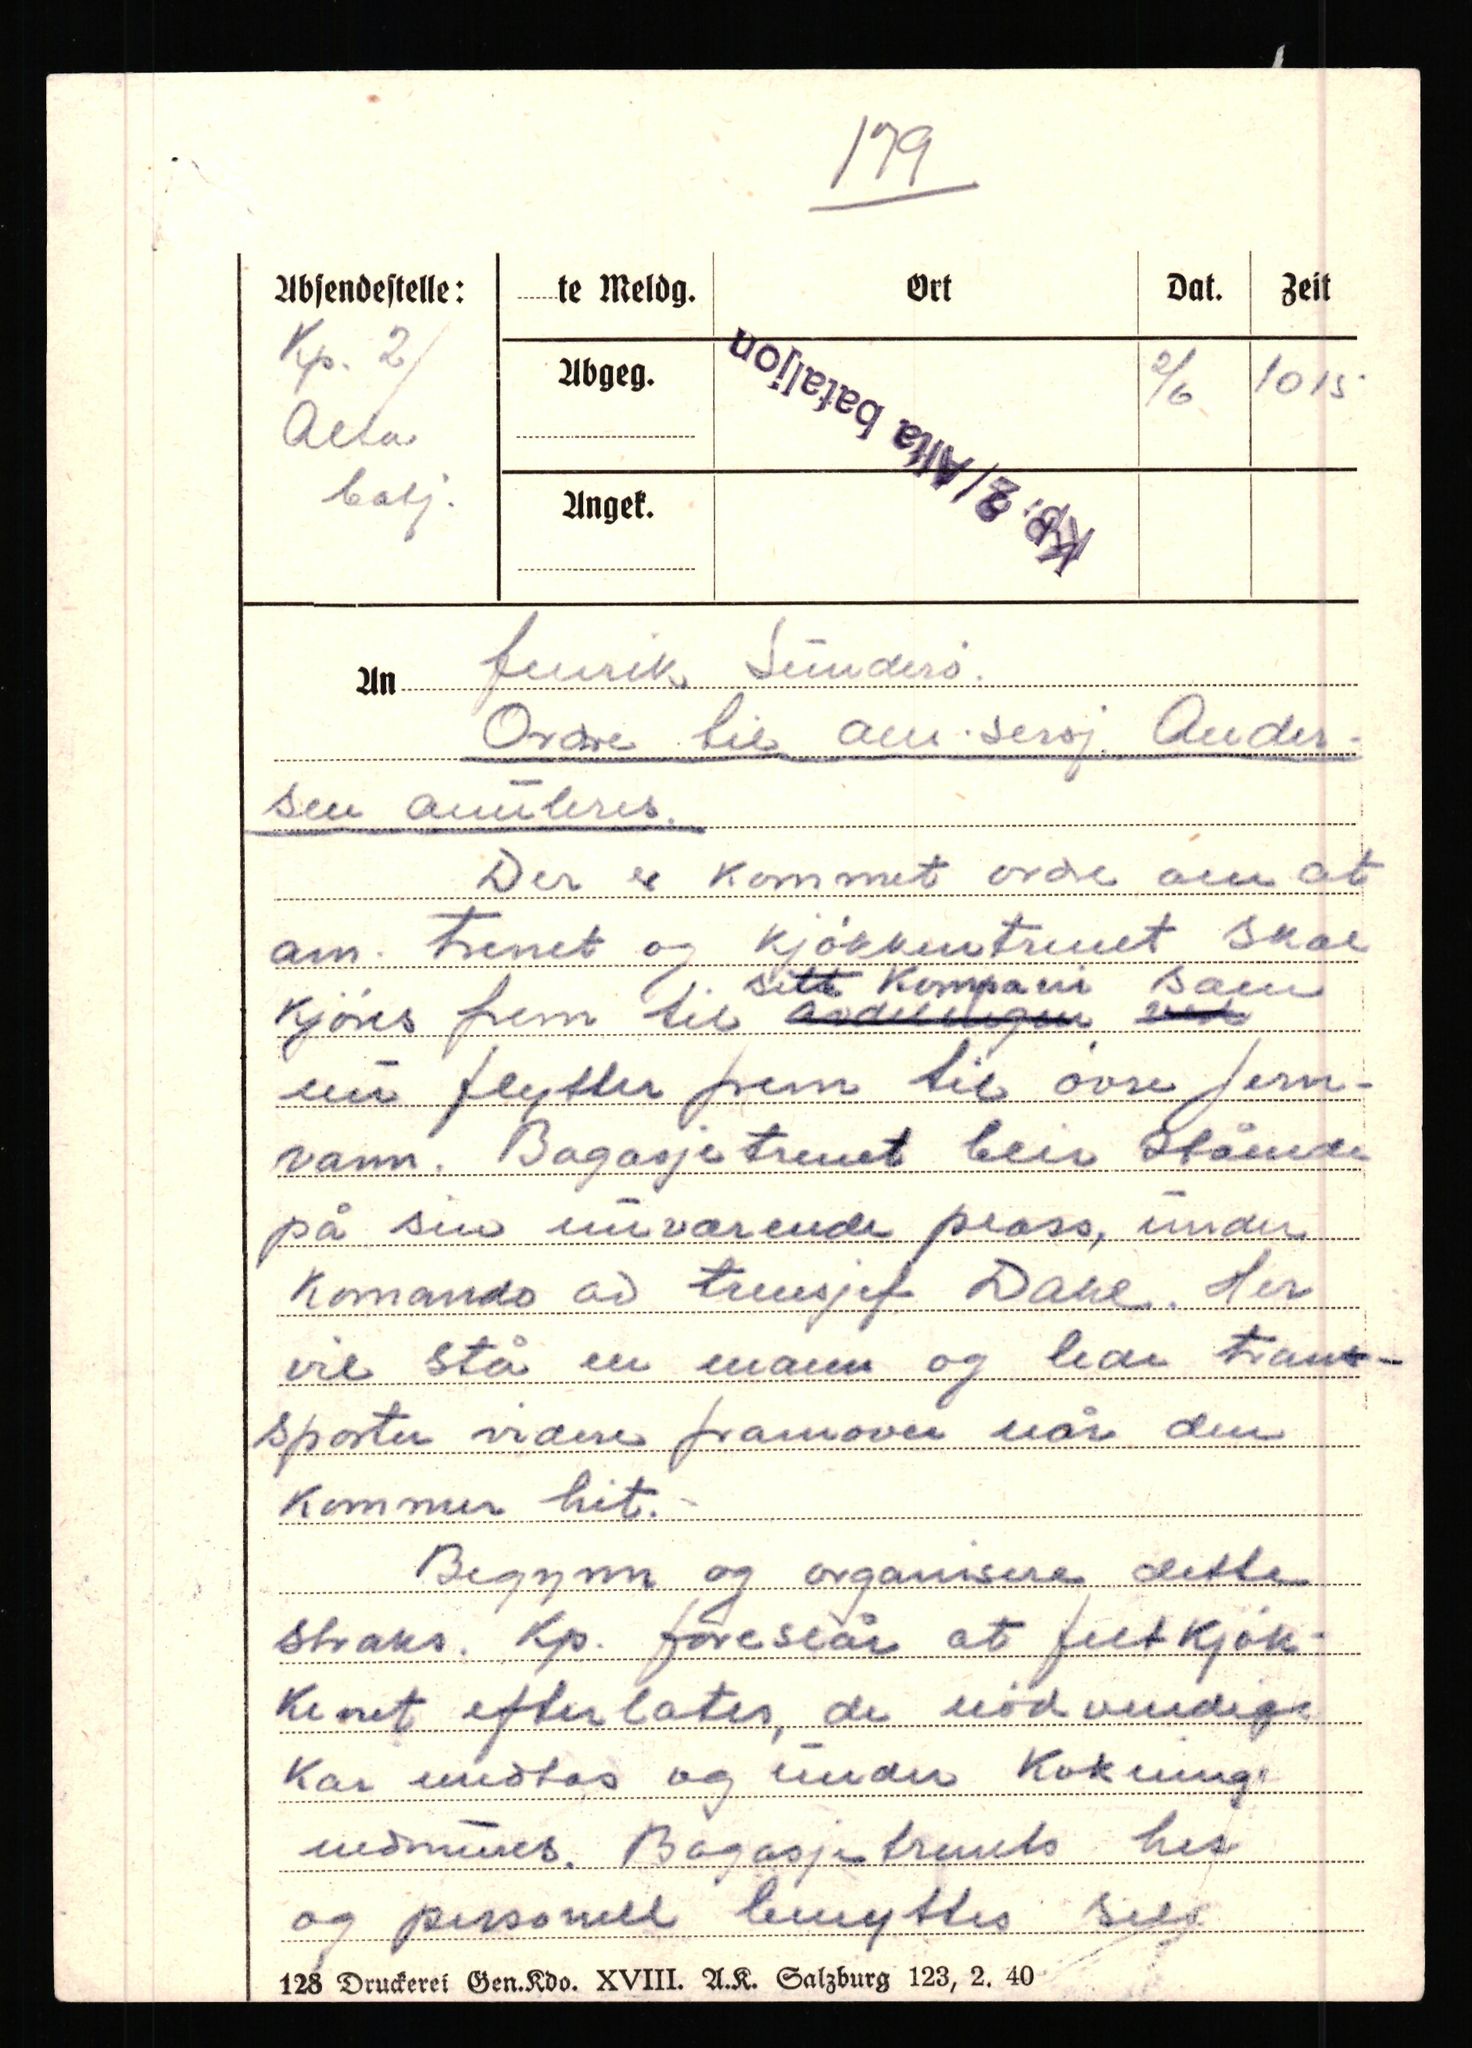 179
Absendestelle: te Meldg. Ort Dat. Zeit
Kp. 2/
Alta
batj.
Abgeg. 2/6 1015
Angek.
Kp. 2/Alta bataljon
An fenrik Sunderö.
Ordre til am.sersj. Ander-
sen anuleres.
Der er kommet ordre om at
am. trenet og kjökkentrenet skal
sitt Kompani som
kjöres frem til avdelingen ved
nu flytter frem til övre Jern-
vann. Bagasjetrenet blir stående
på sin nuværende plass, under
Komando av trensjef Dahl. Her
vil stå en mann og lede trans-
sporten videre framover når den
kommer hit.-
Begynn og organisere dette
straks. Kp. foreslår at feltkjök-
kenet efterlates, de nödvendige
kar medtas og under kokning
nedmures. Bagasjetrenets hes
og personell benyttes selv
128 Druckerei Gen.Kdo. XVIII. A.K. Salzburg 123, 2. 40